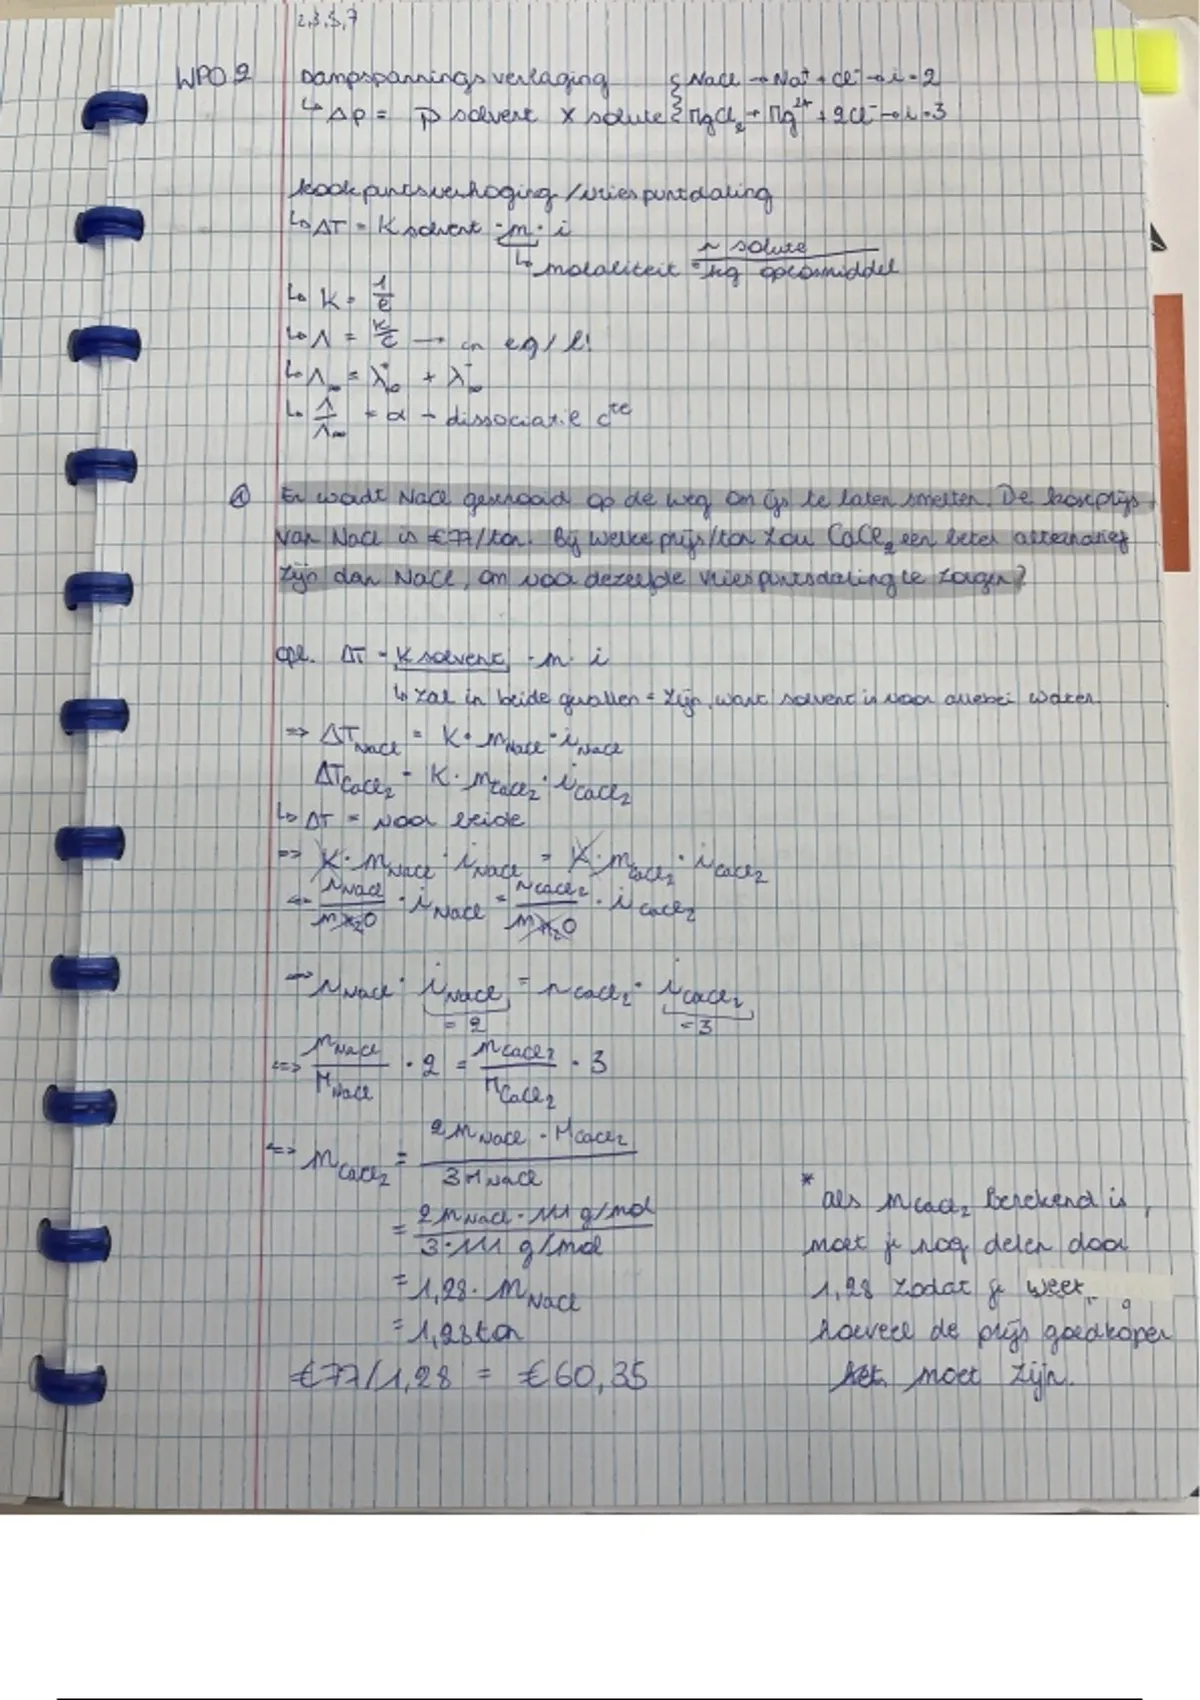 2,3,5,7
WPO 2 Dampspannings verlaging { NaCl → Na⁺ + Cl⁻ → i = 2
↳ Δp = p solvent x solute { MgCl₂ → Mg²⁺ + 2Cl⁻ → i = 3
kookpuntsverhoging / vriespuntdaling
↳ ΔT = K solvent · m · i
↳ molaliteit = n solute / kg oplosmiddel
↳ K = 1/ρ
↳ Λ = K/C → in eq / l!
↳ Λ∞ = λ⁺∞ + λ⁻∞
↳ Λ/Λ∞ = α → dissociatie cte
① Er wordt NaCl gestrooid op de weg om ijs te laten smelten. De kostprijs
van NaCl is €77/ton. Bij welke prijs/ton zou CaCl₂ een beter alternatief
zijn dan NaCl, om voor dezelfde vriespuntsdaling te zorgen?
opl. ΔT = K solvent · m · i
↳ zal in beide gevallen = zijn, want solvent is voor allebei water.
=> ΔT NaCl = K · m NaCl · i NaCl
ΔT CaCl₂ = K · m CaCl₂ · i CaCl₂
↳ ΔT = voor beide
=> K · m NaCl · i NaCl = K · m CaCl₂ · i CaCl₂
<=> n NaCl / m H₂O · i NaCl = n CaCl₂ / m H₂O · i CaCl₂
=> n NaCl · i NaCl = n CaCl₂ · i CaCl₂
= 2 = 3
<=> m NaCl / M NaCl · 2 = m CaCl₂ / M CaCl₂ · 3
<=> m CaCl₂ = 2 m NaCl · M CaCl₂ / 3 M NaCl
= 2 m NaCl · 111 g/mol / 3 · 111 g/mol
= 1,28 · m NaCl
= 1,28 ton
€77/1,28 = €60,35
* als m CaCl₂ berekend is,
moet je nog delen door
1,28 zodat je weet
hoeveel de prijs goedkoper
het moet zijn.